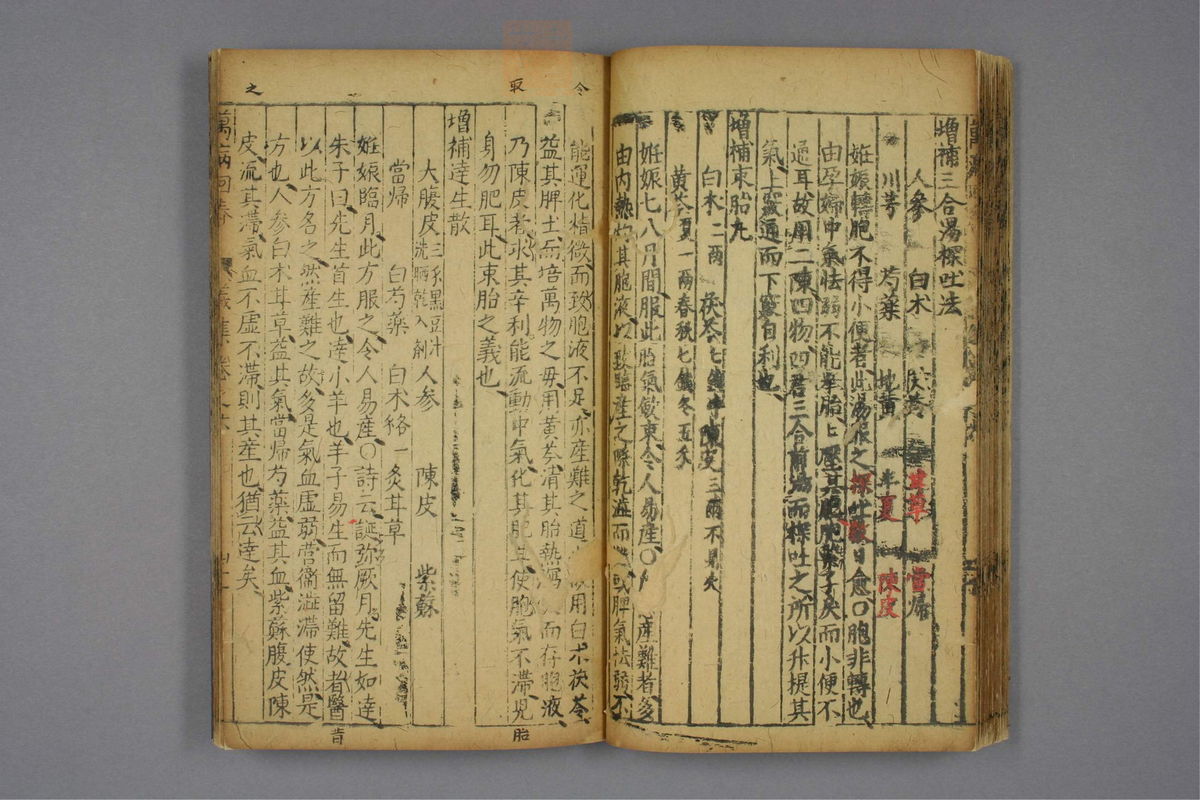 增補三合湯探吐法
人參　白朮　茯苓　甘草　當歸
川芎　芍藥　地黃　半夏　陳皮
妊娠轉胞不得小便者此湯服之探吐數日愈〇胞非轉也
由孕婦中氣怯弱不能舉胎上壓其胞胞繫了戾而小便不
通耳故用二陳四物四君三合煎湯而探吐之所以升提其
氣上竅通而下竅自利也
增補束胎丸
白朮二兩　茯苓七錢半　陳皮三兩不見火
黃芩夏一兩春秋七錢冬五錢
妊娠七八月間服此胎氣斂束令人易產〇產難者多
由內熱灼其胞液以致臨產之際乾澁而難或脾氣怯弱不
能運化精微而致胞液不足亦產難之道用白朮茯苓
益其脾土而培萬物之母用黃芩清其胎熱瀉而存胞液
乃陳皮者取其辛利能流動中氣化其肥其使胞氣不滯兒
身勿肥耳此束胎之義也
增補達生散
大腹皮三錢黑豆汁洗晒乾入劑　人參　陳皮　紫蘇
當歸　白芍藥　白朮各一　炙甘草
妊娠臨月此方服之令人易產〇詩云誕弥厥月先生如達
朱子曰先生首生也達小羊也羊子易生而無留難故昔醫
以此方名之然產難之故多是氣血虛弱營衞澁滯使然是
方也人參白朮甘草益其氣當歸芍藥益其血紫蘇腹皮陳
皮流其滯氣血不虛不滯則其產也猶云達矣
萬病回春
令
取
之
胎
昔